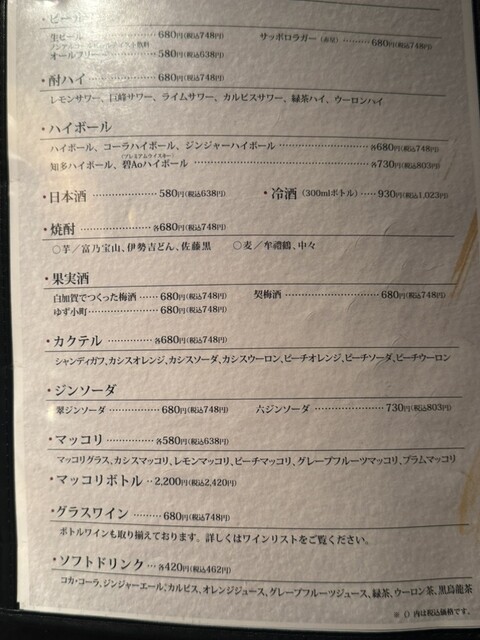 ・ビール
生ビール………680円(税込748円)
サッポロラガー（赤星）………680円(税込748円)
ノンアルコールビールテイスト飲料
オールフリー………580円(税込638円)
・酎ハイ………680円(税込748円)
レモンサワー、巨峰サワー、ライムサワー、カルピスサワー、緑茶ハイ、ウーロンハイ
・ハイボール
ハイボール、コーラハイボール、ジンジャーハイボール………各680円(税込748円)
（プレミアムウイスキー）
知多ハイボール、碧Aoハイボール………各730円(税込803円)
・日本酒………580円(税込638円)
・冷酒（300mlボトル）……930円(税込1,023円)
・焼酎………各680円(税込748円)
○芋／富乃宝山、伊勢吉どん、佐藤黒　○麦／牟禮鶴、中々
・果実酒
白加賀でつくった梅酒……680円(税込748円)
契梅酒………680円(税込748円)
ゆず小町………680円(税込748円)
・カクテル………各680円(税込748円)
シャンディガフ、カシスオレンジ、カシスソーダ、カシスウーロン、ピーチオレンジ、ピーチソーダ、ピーチウーロン
・ジンソーダ
翠ジンソーダ………680円(税込748円)
六ジンソーダ………730円(税込803円)
・マッコリ………各580円(税込638円)
マッコリグラス、カシスマッコリ、レモンマッコリ、ピーチマッコリ、グレープフルーツマッコリ、プラムマッコリ
・マッコリボトル‥2,200円(税込2,420円)
・グラスワイン………680円(税込748円)
ボトルワインも取り揃えております。詳しくはワインリストをご覧ください。
・ソフトドリンク……各420円(税込462円)
コカ・コーラ、ジンジャーエール、カルピス、オレンジジュース、グレープフルーツジュース、緑茶、ウーロン茶、黒烏龍茶
※（）内は税込価格です。